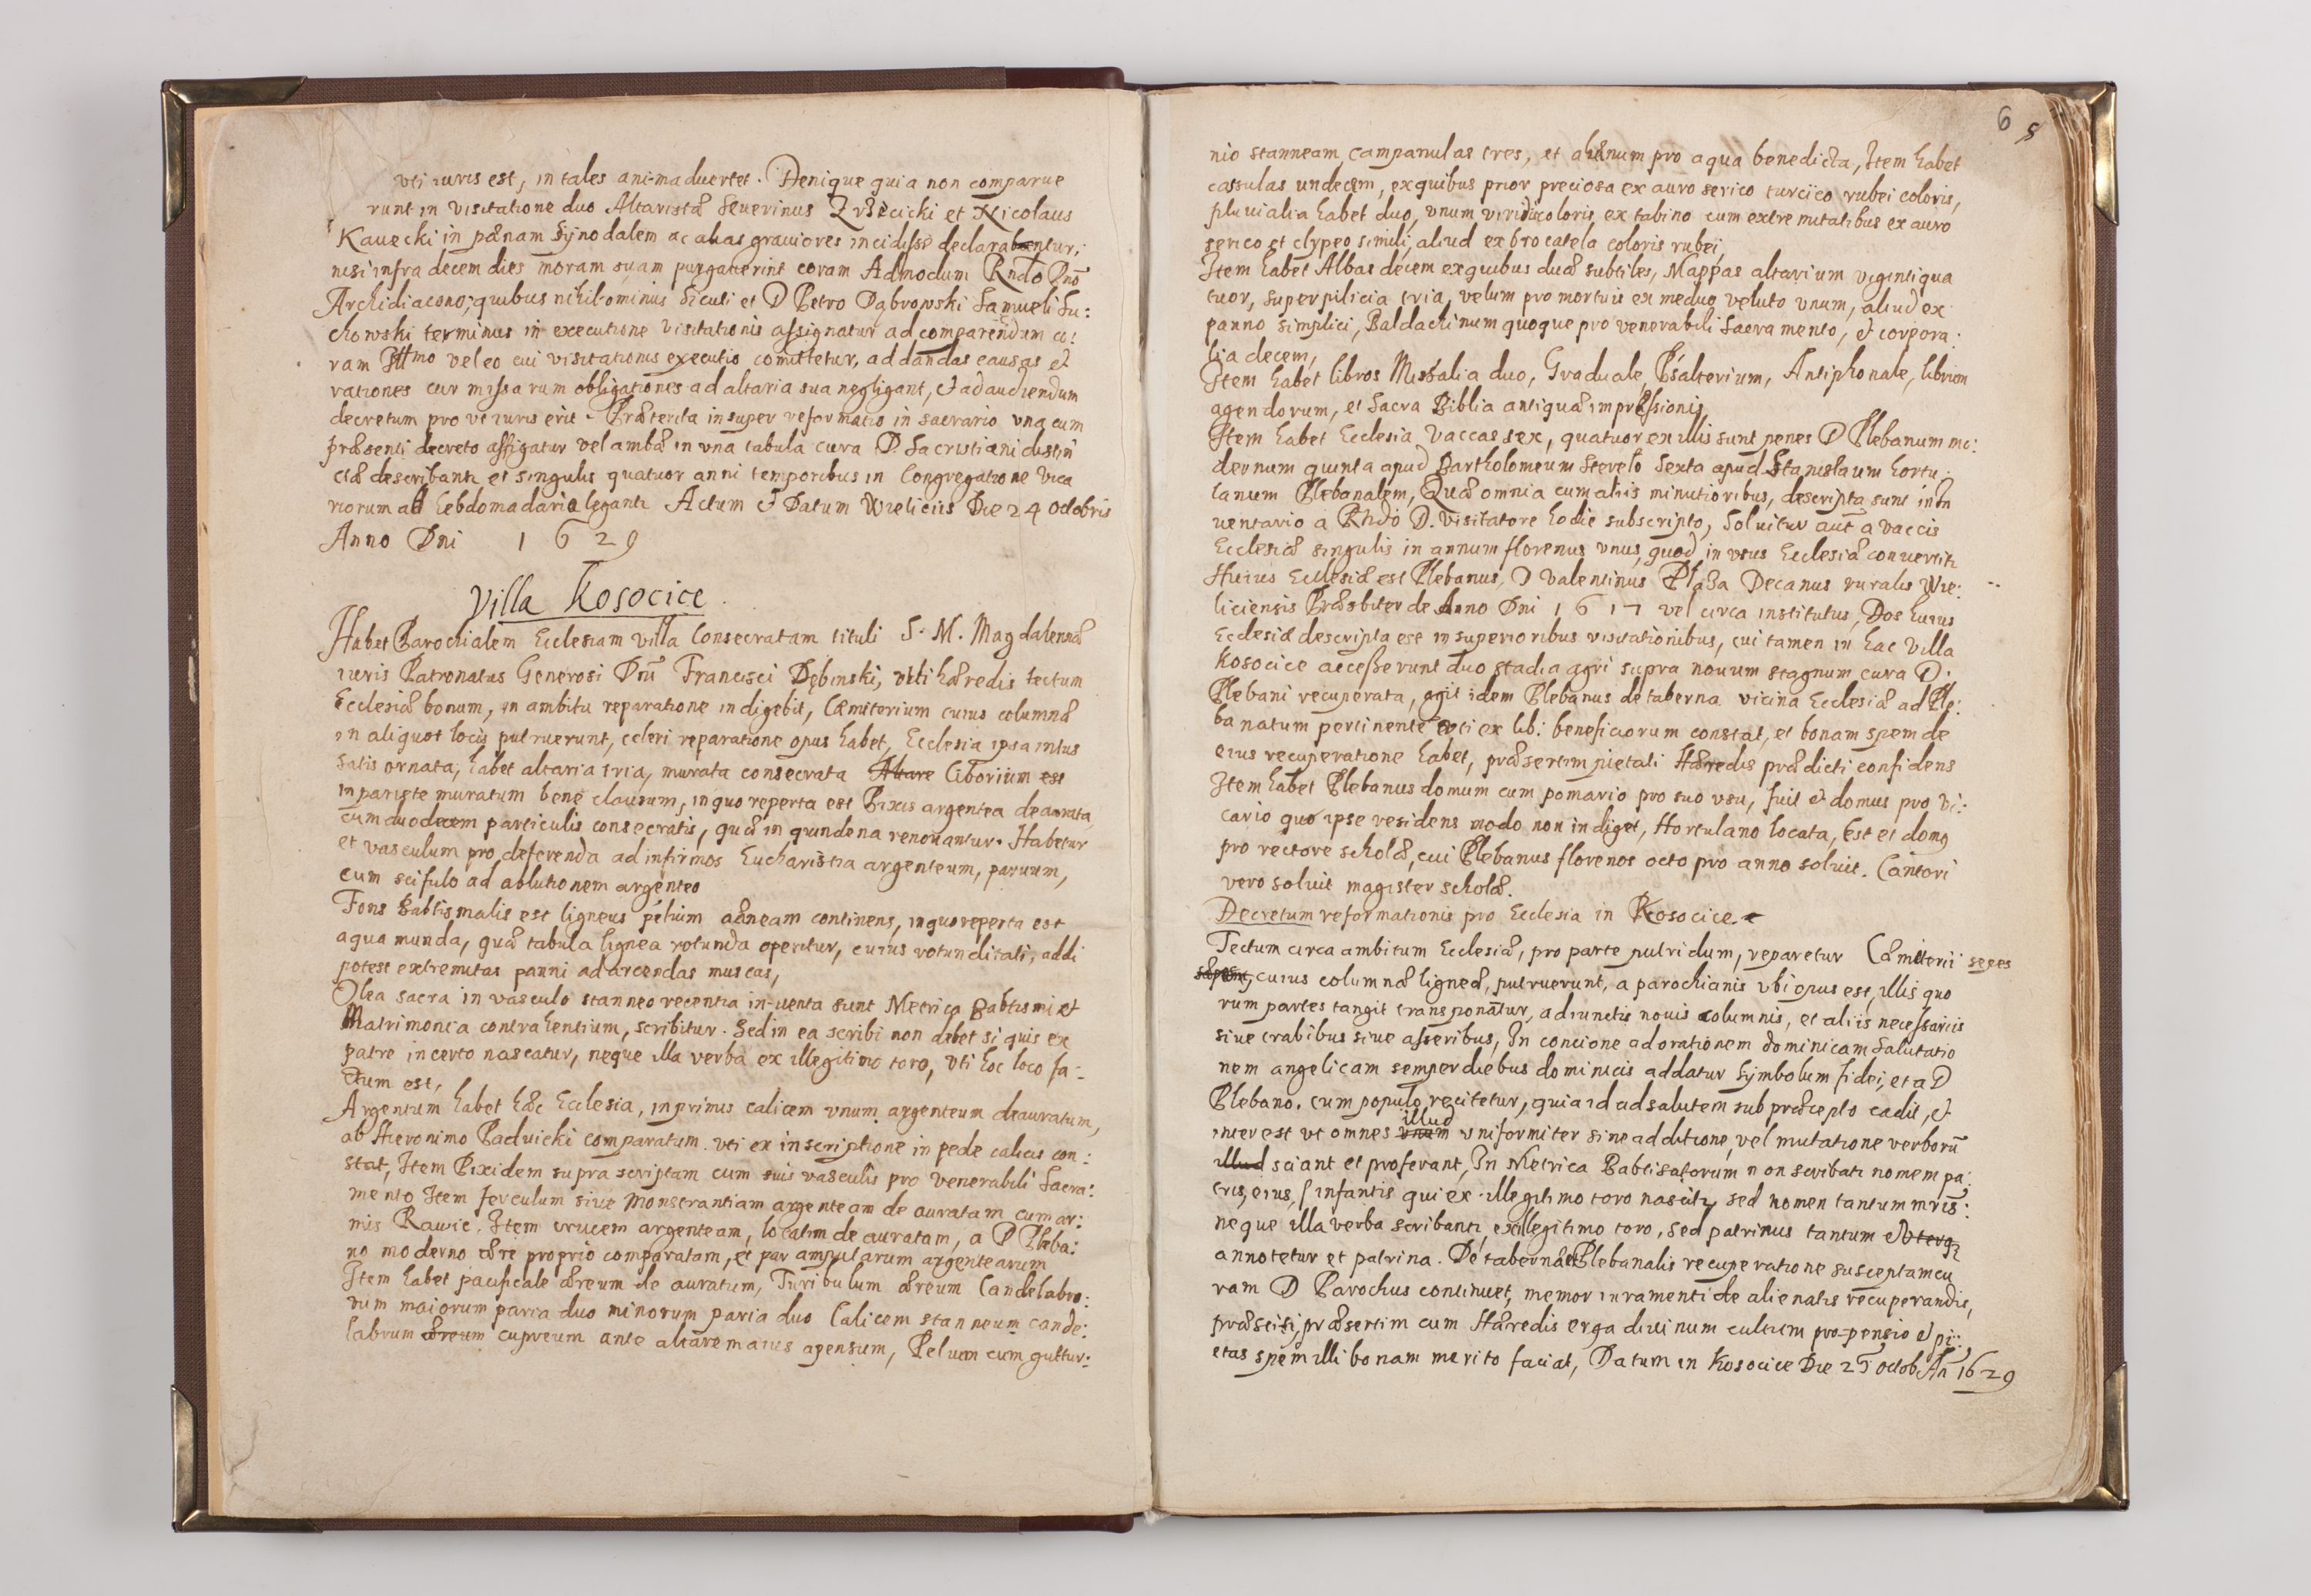 uti iuris est, in tales animaduertet. Denique quia non comparue
runt in visitatione duo Altaristæ Seuerinus et Nicolaus
Kauecki in pænam synodalem ac alias grauiores incidisse declarabuntur,
nisi infra decem dies moram suam purgauerint coram Admodum Rndo Dno
Archidiacono; quibus nihilominus sicuti et D Petro Dąbrowski Samueli Su:
chowski terminus in executione visitationis assignatur ad comparendum co:
ram Illmo vel eo cui visitationis executio comittetur, ad dandas causas et
rationes cur missarum obligationes ad altaria sua negligant, et ad audiendum
decretum pro ut iuris erit. Præterita insuper reformatio in sacrario una cum
præsenti decreto affigatur vel ambæ in una tabula cura D. Sacristiani distin
ctæ describantr et singulis quatuor anni temporibus in Congregatione vica
riorum ad hebdomadaria legantr Actum et Datum Wieliciis Die 24 octobris
Anno Dni 1629
Villa Kosocice
Habet Parochialem Ecclesiam villa Consecratam tituli S. M. Magdalenæ
iuris Patronatus Generosi Dni Francisci Dębinski, uti hæredis tectum
Ecclesiæ bonum, in ambitu reparatione indigebit, Cæmiterium cuius columnæ
in aliquot locis putruerunt, celeri reparatione opus habet, Ecclesia ipsa intus
satis ornata, habet altaria tria, murata consecrata Altare Ciborium est
in pariete muratum bene clausum, in quo reperta est Pixis argentea deaurata
cum duodecem particulis consecratis, quæ in quindena renouantur. Habetur
et vasculum pro deferenda ad infirmos Eucharistia argenteum, paruum,
cum scifulo ad ablutionem argenteo
Fons Babtismalis est ligneus peluim æneam continens, in quo reperta est
aqua munda, quæ tabula lignea rotunda operitur, cuius rotunditati, addi
potest extremitas panni ad arcendas muscas,
Olea sacra in vasculo stanneo recentia in-uenta sunt Metrica Babtismi et
Matrimonia contrahentium, scribitur. Sed in ea scribi non debet si quis ex
patre incerto nascatur, neque illa verba ex illegitimo toro, uti hoc loco fa:
ctum est,
Argentum habet hæc Ecclesia, inprimis calicem unum argenteum deauratum,
ab Hieronimo Paduicki comparatum. uti ex inscriptione in pede calicis con:
stat, Item Pixidem supra scriptam cum suis vasculis pro venerabili Sacra:
mento Item ferculum siue Monstrantiam argenteam de auratam cum ar:
mis Rawic. Item crucem argenteam, locatim de auratam, a D Pleba:
no moderno ære proprio comparatam, et par ampularum argentearum
Item habet pacificale æreum de auratum, Turibulum æreum Candelabro:
rum maiorum paria duo minorum paria duo Calicem stanneum cande:
labrum æreum cupreum ante altare maius apensum, Peluem cum guttur:
6 5
nio stanneam campanulas tres, et ahænum pro aqua benedicta, Item habet
cassulas undecem, ex quibus prior preciosa ex auro serico turcico rubei coloris,
pluuialia habet duo, unum viridis coloris ex tabino cum extremitatibus ex auro
serico et clypeo simili, aliud ex brocatela coloris rubei,
Item habet Albas decem ex quibus duæ subtiles, Mappas altarium vigintiqua
tuor, superpilicia tria, velum pro mortuis ex medio veluto unum, aliud ex
panno simplici, Baldachinum quoque pro venerabili Sacramento, et corpora:
lia decem,
Item habet libros Missalia duo, Graduale, Psalterium, Antiphonale, librum
agendorum, et Sacra Biblia antiquæ impressionis,
Item habet Ecclesia vaccas sex, quatuor ex illis sunt penes D Plebanum mo:
dernum quinta apud Bartholomeum Sterelo Sexta apud Stanislaum hortu:
lanum Plebanalem, Quæ omnia cum aliis minutioribus, descripta sunt in In
uentario a Rndo D. Visitatore hodie subscripto, Soluitur aut a vaccis
Ecclesiæ singulis in annum florenus unus, quod in usus Ecclesiæ conuertitr
Huius Ecclesiæ est Plebanus, D Valentinus Plaza Decanus ruralis Wie:
liciensis Præsbiter de Anno Dni 1617 vel circa institutus, Dos huius
Ecclesiæ descripta est in superioribus visitationibus, cui tamen in hac villa
Kosocice accesserunt duo stadia agri supra nouum stagnum cura D.
Plebani recuperata, agit idem Plebanus de taberna vicina Ecclesiæ ad Ple:
banatum pertinente uti ex lib: beneficiorum constat, et bonam spem de
eius recuperatione habet, præsertim pietati Hæredis prædicti confidens
Item habet Plebanus domum cum pomario pro suo usu, fuit et domus pro Vi:
cario quo ipse residens modo non indiget, Hortulano locata, Est et domg
pro rectore scholæ, cui Plebanus florenos octo pro anno soluit. Cantori
vero soluit magister scholæ.
Decretum reformationis pro Ecclesia in Kosocice
Tectum circa ambitum Ecclesiæ, pro parte putridum, reparetur Cæmiterii sepes
cuius columnæ ligneæ, putruerunt, a parochianis ubi opus est, illis quo
rum partes tangit transponatur, adiunctis nouis columnis, et aliis necessariis
siue trabibus siue asseribus, In concione ad orationem dominicam Salutatio
nem angelicam semper diebus dominicis addatur Symbolum fidei, et a D
Plebano. cum populo recitetur, quia id ad salutem sub præcepto cadit, et
interest ut omnes unum illud uniformiter sine additione, vel mutatione verborū
illud sciant et proferant, In Metrica Babtisatorum non scribatr nomen pa:
tris, eius, infantis qui ex illegitimo toro nascitr, sed nomen tantum mris:
neque illa verba scribantr, ex illegitimo toro, sed patrinus tantum
annotetur et patrina. De tabernæ Plebanalis recuperatione susceptam cu
ram D Parochus continuet, memor iuramenti de alienatis recuperandis,
præstiti, præsertim cum Hæredis erga diuinum cultum pro-pensio et pi:
etas spem illi bonam merito faciat, Datum in Kosocice Die 25 octob An 1629